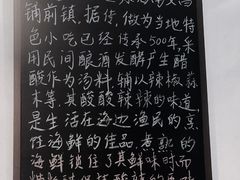 铺前镇,据传,做为当地特
色小吃已经传承500年,采
用民间酿酒发酵产生醋
酸作为汤料,辅以辣椒蒜
末等,其酸酸辣辣的味道
是生活在海边渔民的烹
任海鲜的佳品,煮熟的
海鲜锁住了其鲜味时而